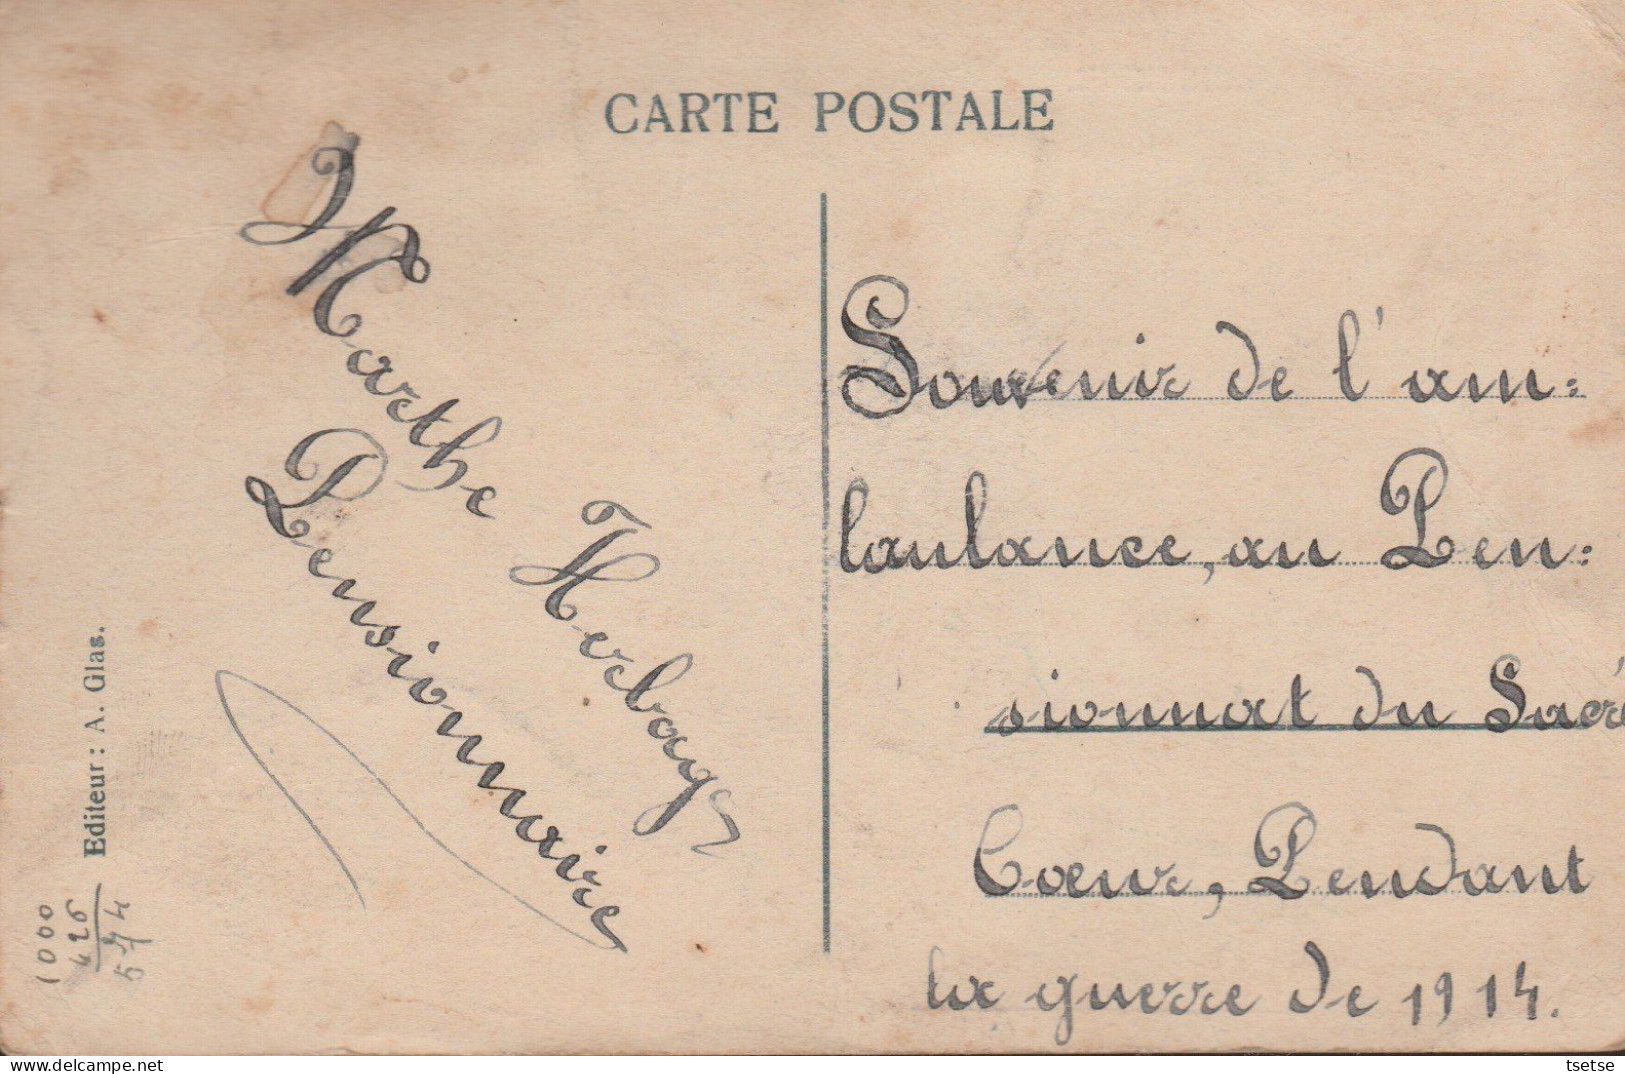 CARTE POSTALE
Marthe Herbays
Pensionnaire
Editeur: A. Glas.
1000
426
574
Souvenir de l'am=
laulance, au Pen=
sionnat du Sacré
Coeur, Pendant
la guerre de 1914.
tsetse